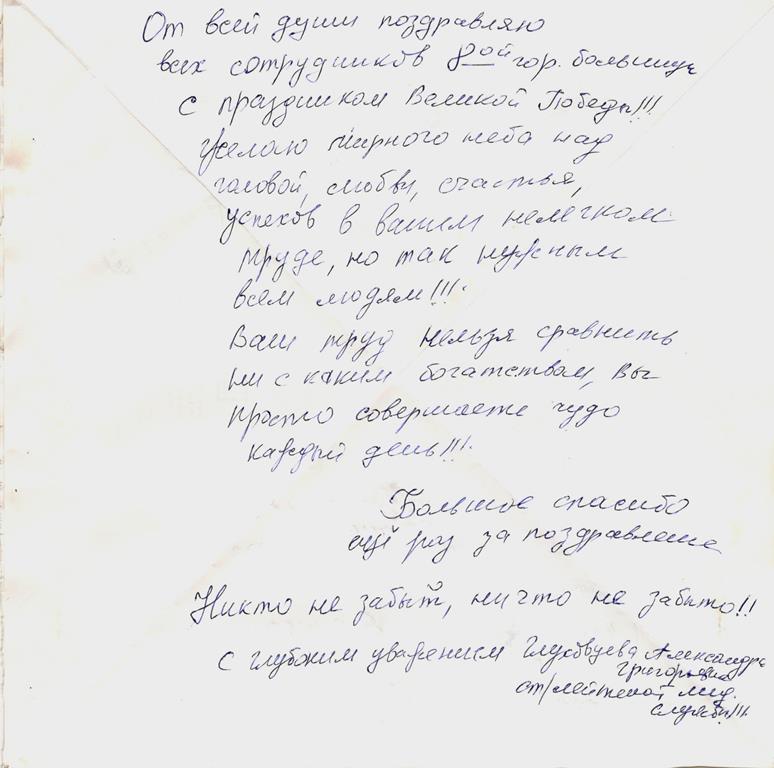 От всей души поздравляю
всех сотрудников 8ой гор. больницы
с праздником Великой Победы!!!
Желаю мирного неба над
головой, любви, счастья,
успехов в вашем нелёгком
труде, но так нужным
всем людям!!!
Ваш труд нельзя сравнить
ни с каким богатством, Вы
просто совершаете чудо
каждый день!!!
Большое спасибо
ещё раз за поздравление
Никто не забыт, ничто не забыто!!
С глубоким уважением Александра
Григорьевна
ст/лейтенант мед.
службы!!!